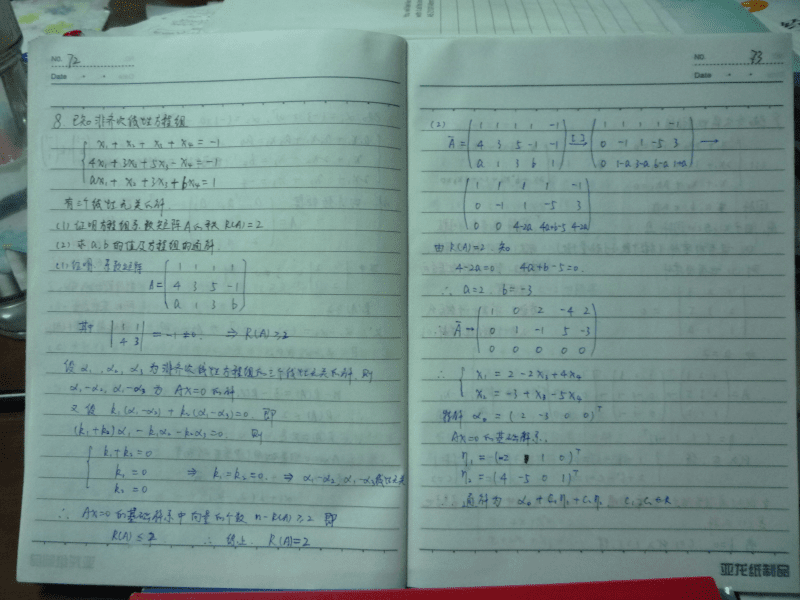 NO. 72
Date
8. 已知非齐次线性方程组
x₁ + x₂ + x₃ + x₄ = -1
4x₁ + 3x₂ + 5x₃ - x₄ = -1
ax₁ + x₂ + 3x₃ + bx₄ = 1
有三个线性无关的解.
(1) 证明方程组系数矩阵A的秩 R(A)=2
(2) 求 a, b 的值及方程组的通解.
(1) 证明: 系数矩阵
1 1 1 1
A= 4 3 5 -1
a 1 3 b
其中 |1 1; 4 3| = -1 ≠ 0. ⇒ R(A) ≥ 2
设 α₁, α₂, α₃ 为非齐次线性方程组的三个线性无关的解, 则
α₁-α₂, α₁-α₃ 为 AX=0 的解
又设 k₁(α₁-α₂) + k₂(α₁-α₃)=0. 即
(k₁+k₂)α₁ - k₁α₂ - k₂α₃ =0. 则
k₁+k₂=0
k₁ = 0 ⇒ k₁=k₂=0. ⇒ α₁-α₂, α₁-α₃线性无关
k₂ = 0
∴ AX=0 的基础解系中向量的个数 n-R(A) ≥ 2 即
R(A) ≤ 2 ∴ 综上 R(A)=2
亚龙纸制品
NO. 73
Date
(2)
1 1 1 1 -1
Ā= 4 3 5 -1 -1
a 1 3 b 1
1 1 1 1 -1
0 -1 1 -5 3
0 1-a 3-a b-a 1+a
→
1 1 1 1 -1
0 -1 1 -5 3
0 0 4-2a 4a+b-5 4-2a
由 R(A)=2 知
4-2a=0 4a+b-5=0.
∴ a=2, b=-3
1 0 2 -4 2
∴ Ā→ 0 1 -1 5 -3
0 0 0 0 0
∴ x₁ = 2 - 2x₃ + 4x₄
x₂ = -3 + x₃ - 5x₄
特解 α₀ = (2 -3 0 0)ᵀ
AX=0 的基础解系.
η₁ = (-2 1 1 0)ᵀ
η₂ = (4 -5 0 1)ᵀ
∴ 通解为 α₀ + C₁η₁ + C₂η₂ C₁, C₂ ∈ R
亚龙纸制品